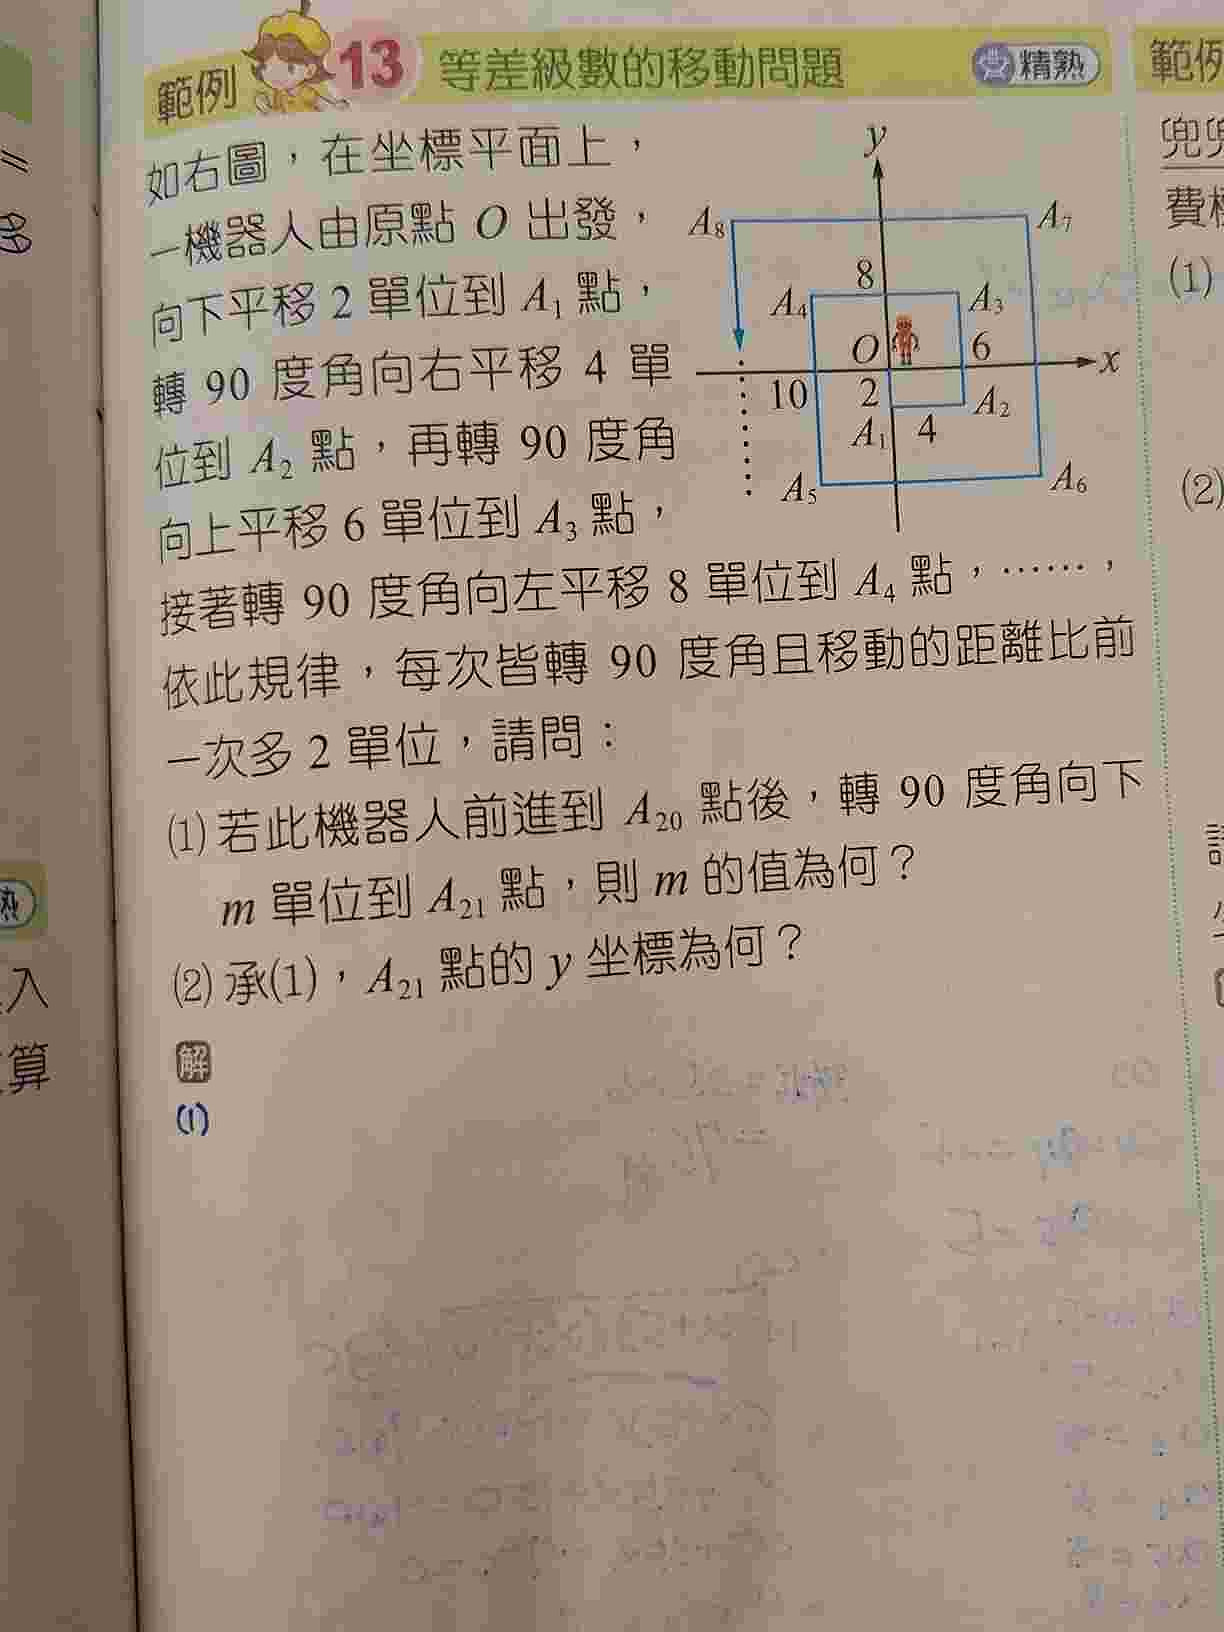 範例 13 等差級數的移動問題 精熟
如右圖，在坐標平面上，
一機器人由原點 O 出發，
向下平移 2 單位到 A₁ 點，
轉 90 度角向右平移 4 單
位到 A₂ 點，再轉 90 度角
向上平移 6 單位到 A₃ 點，
接著轉 90 度角向左平移 8 單位到 A₄ 點，……，
依此規律，每次皆轉 90 度角且移動的距離比前
一次多 2 單位，請問：
y
A₈ A₇
8
A₄ A₃
O 6 x
10 2 A₂
A₁ 4
A₅ A₆
⑴ 若此機器人前進到 A₂₀ 點後，轉 90 度角向下
m 單位到 A₂₁ 點，則 m 的值為何？
⑵ 承(1)，A₂₁ 點的 y 坐標為何？
解
(1)
範例
費
(1)
(2)
入
算